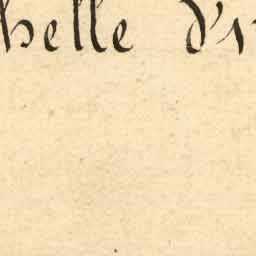 helle d'i